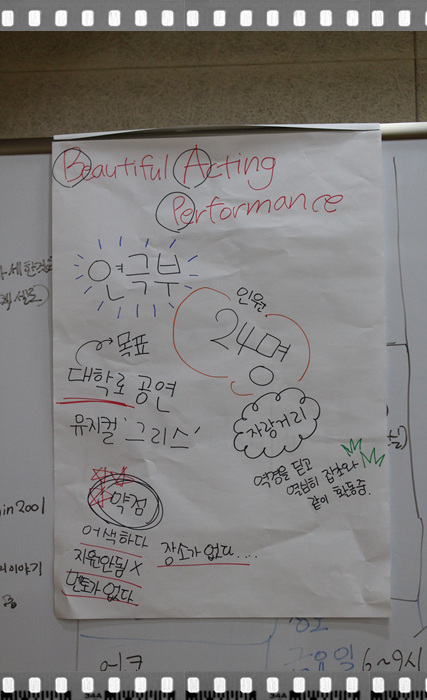 Beautiful Acting
Performance
연극부
인원
24명
목표
대학로 공연
뮤지컬 '그리스'
자랑거리
역경을 딛고
열심히 잡초와
같이 활동중.
약점
어색하다
지원안됨 X
멘토가 없다
장소가 없다...
in2001
이야기
금요일 6~9시